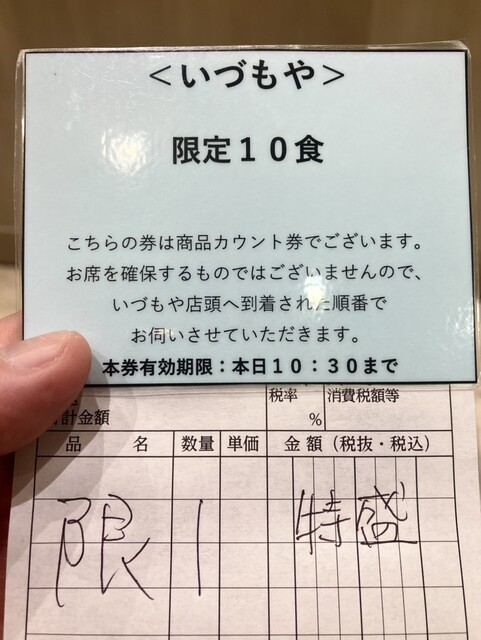 ＜いづもや＞
限定１０食
こちらの券は商品カウント券でございます。
お席を確保するものではございませんので、
いづもや店頭へ到着された順番で
お伺いさせていただきます。
本券有効期限：本日１０：３０まで
計金額 税率 % 消費税額等
品 名 数量 単価 金額（税抜・税込）
限 1 特盛